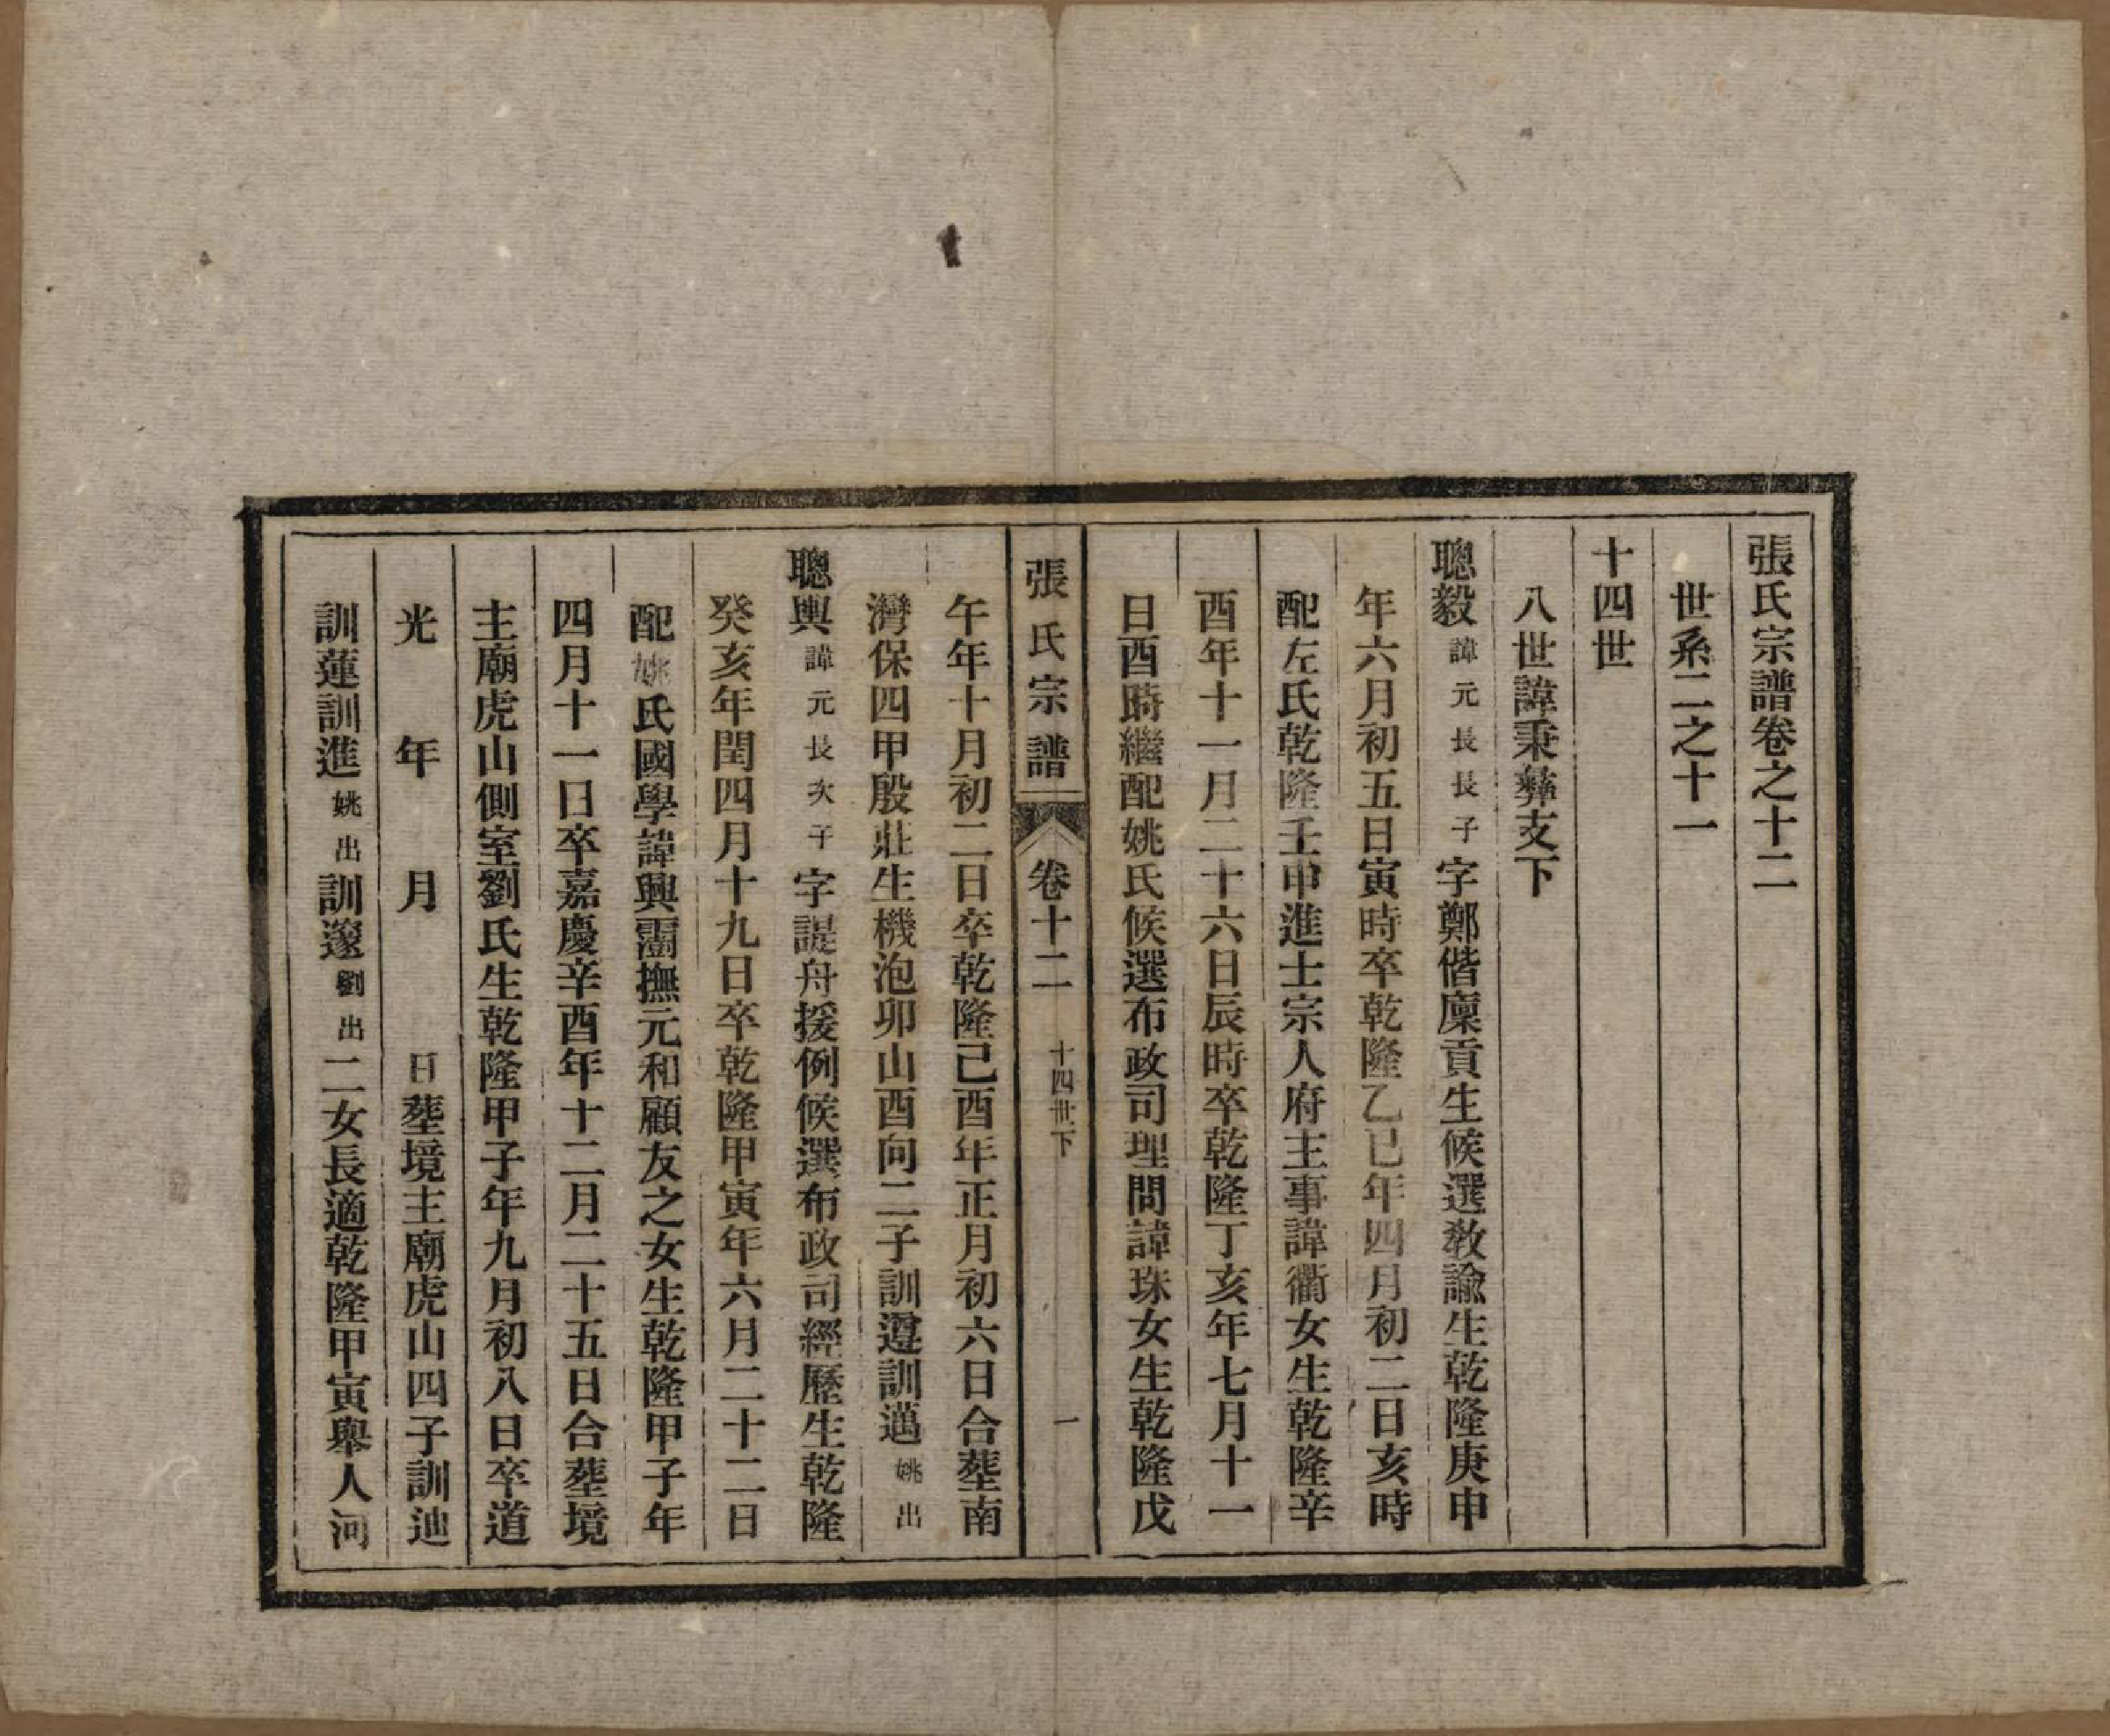 張氏宗譜卷之十二
世系二之十一
十四世
八世諱秉彝支下
聰毅諱元長長子字鄭偕廩貢生候選敎諭生乾隆庚申
年六月初五日寅時卒乾隆乙巳年四月初二日亥時
配左氏乾隆壬申進士宗人府主事諱衢女生乾隆辛
酉年十一月二十六日辰時卒乾隆丁亥年七月十一
日酉時繼配姚氏候選布政司理問諱珠女生乾隆戊
張氏宗譜 卷十二 十四世下 一
午年十月初二日卒乾隆己酉年正月初六日合葬南
灣保四甲殷莊生機泡卯山酉向二子訓遵訓邁姚出
聰輿諱元長次子字諟舟援例候選布政司經歷生乾隆
癸亥年閏四月十九日卒乾隆甲寅年六月二十二日
配姚氏國學諱興𤅬撫元和顧友之女生乾隆甲子年
四月十一日卒嘉慶辛酉年十二月二十五日合葬境
主廟虎山側室劉氏生乾隆甲子年九月初八日卒道
光 年 月 日葬境主廟虎山四子訓迪
訓蓮訓進姚出訓邃劉出二女長適乾隆甲寅舉人河